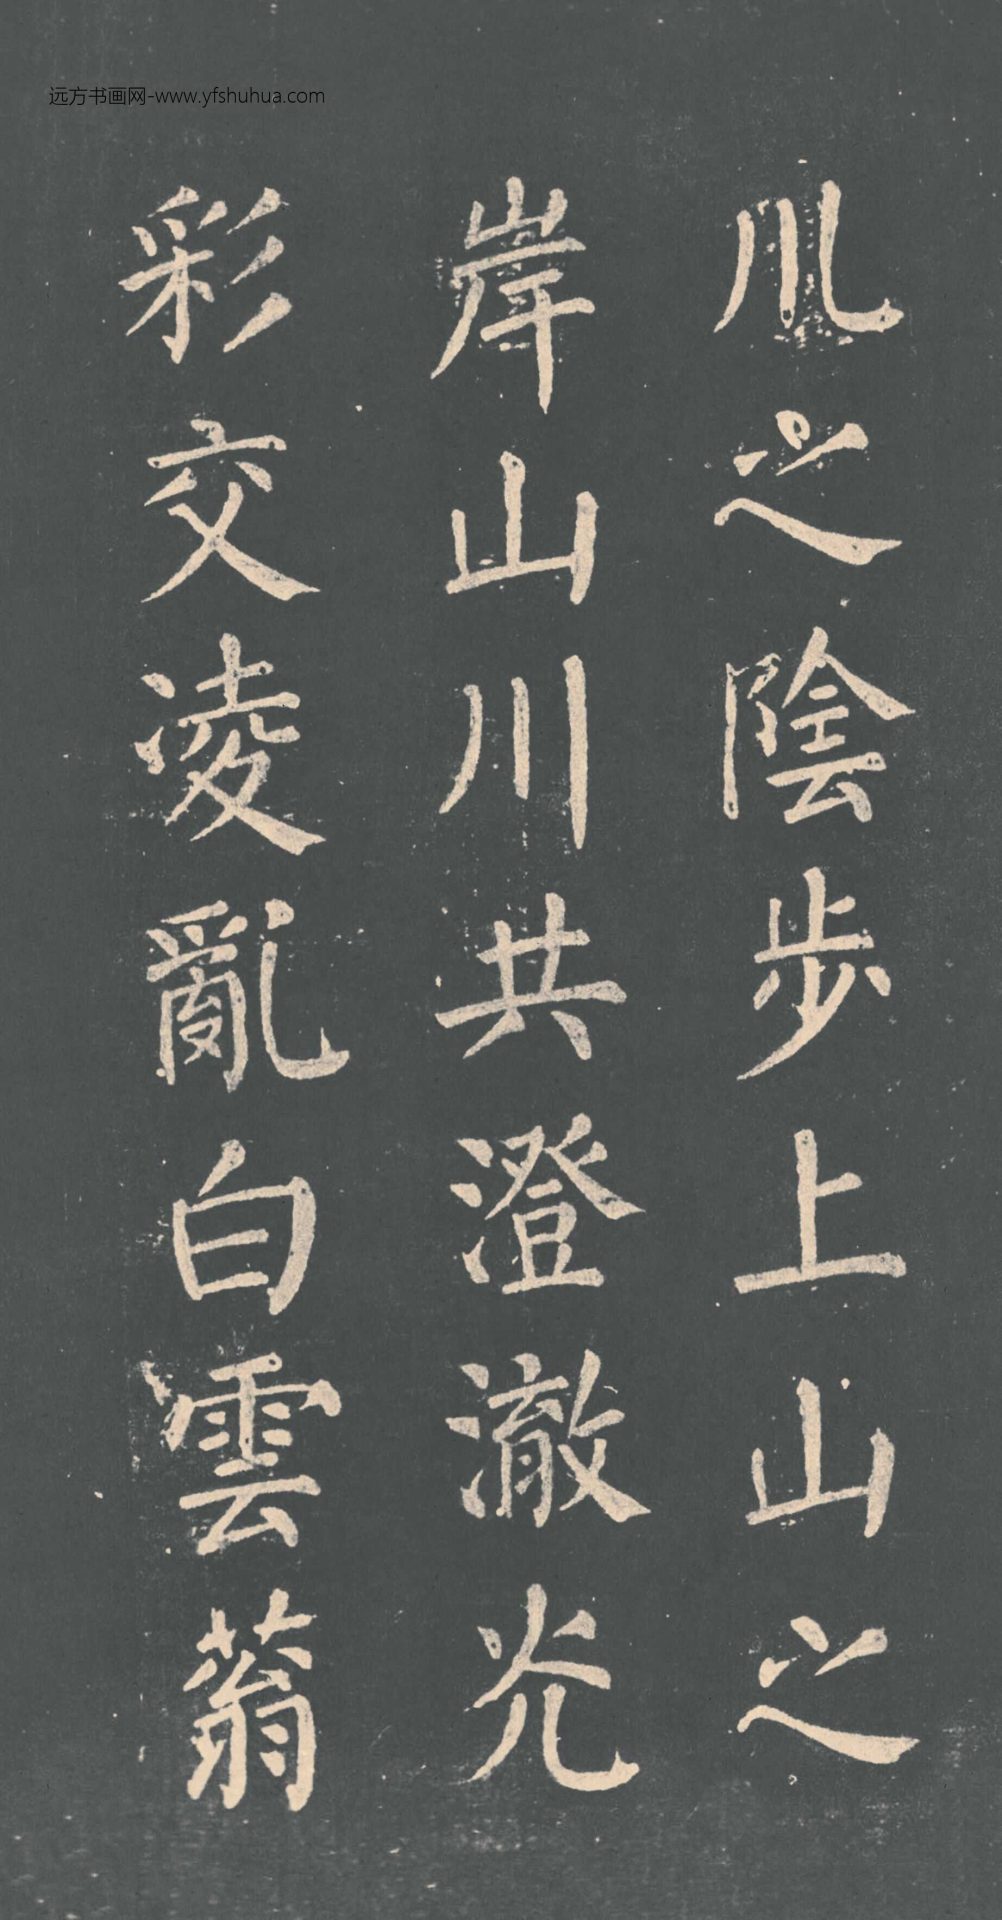 川之陰步上山之
岸山川共澄澈光
彩交凌亂白雲蓊
远方书画网-www.yfshuhua.com